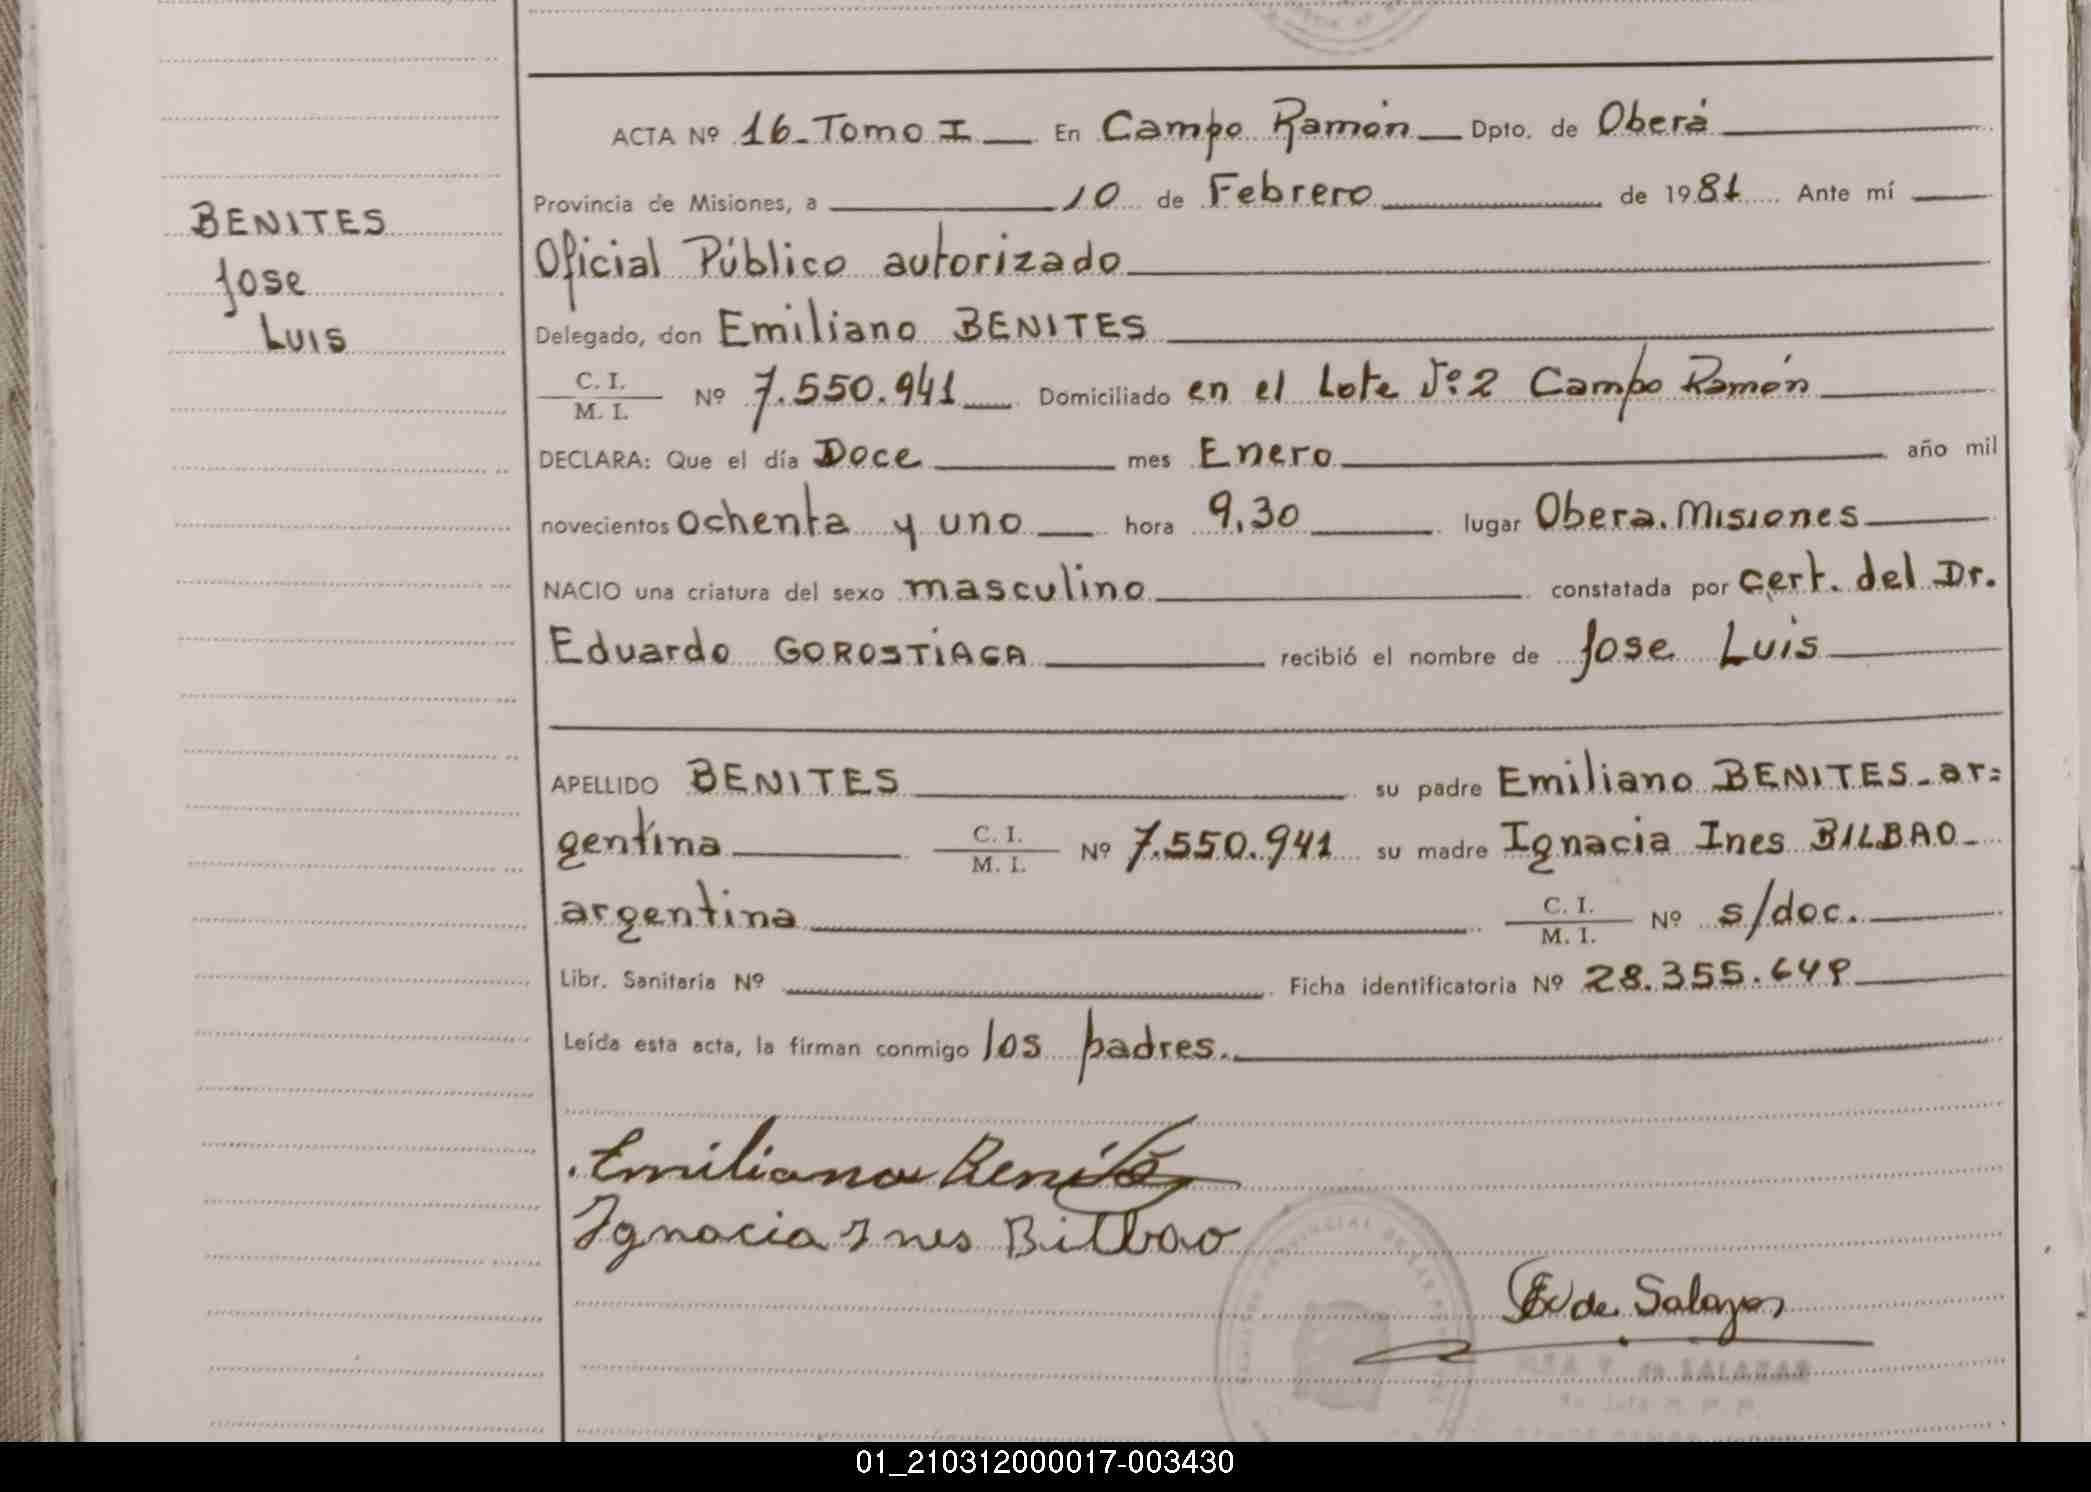 BENITES
Jose
Luis
ACTA Nº 16-Tomo I En Campo Ramón Dpto. de Oberá
Provincia de Misiones, a 10 de Febrero de 1981 Ante mí
Oficial Público autorizado
Delegado, don Emiliano BENITES
C. I.
M. I. Nº 7.550.941 Domiciliado en el Lote Nº 2 Campo Ramón
DECLARA: Que el día Doce mes Enero año mil
novecientos ochenta y uno hora 9,30 lugar Obera. Misiones
NACIO una criatura del sexo masculino constatada por cert. del Dr.
Eduardo GOROSTIAGA recibió el nombre de Jose Luis
APELLIDO BENITES su padre Emiliano BENITES - ar=
gentina C. I.
M. I. Nº 7.550.941 su madre Ignacia Ines BILBAO -
argentina C. I.
M. I. Nº s/doc.
Libr. Sanitaria Nº Ficha identificatoria Nº 28.355.649
Leída esta acta, la firman conmigo los padres.
Emiliano Benites
Ignacia Ines Bilbao
de Salazar
de SALAZAR
01_210312000017-003430